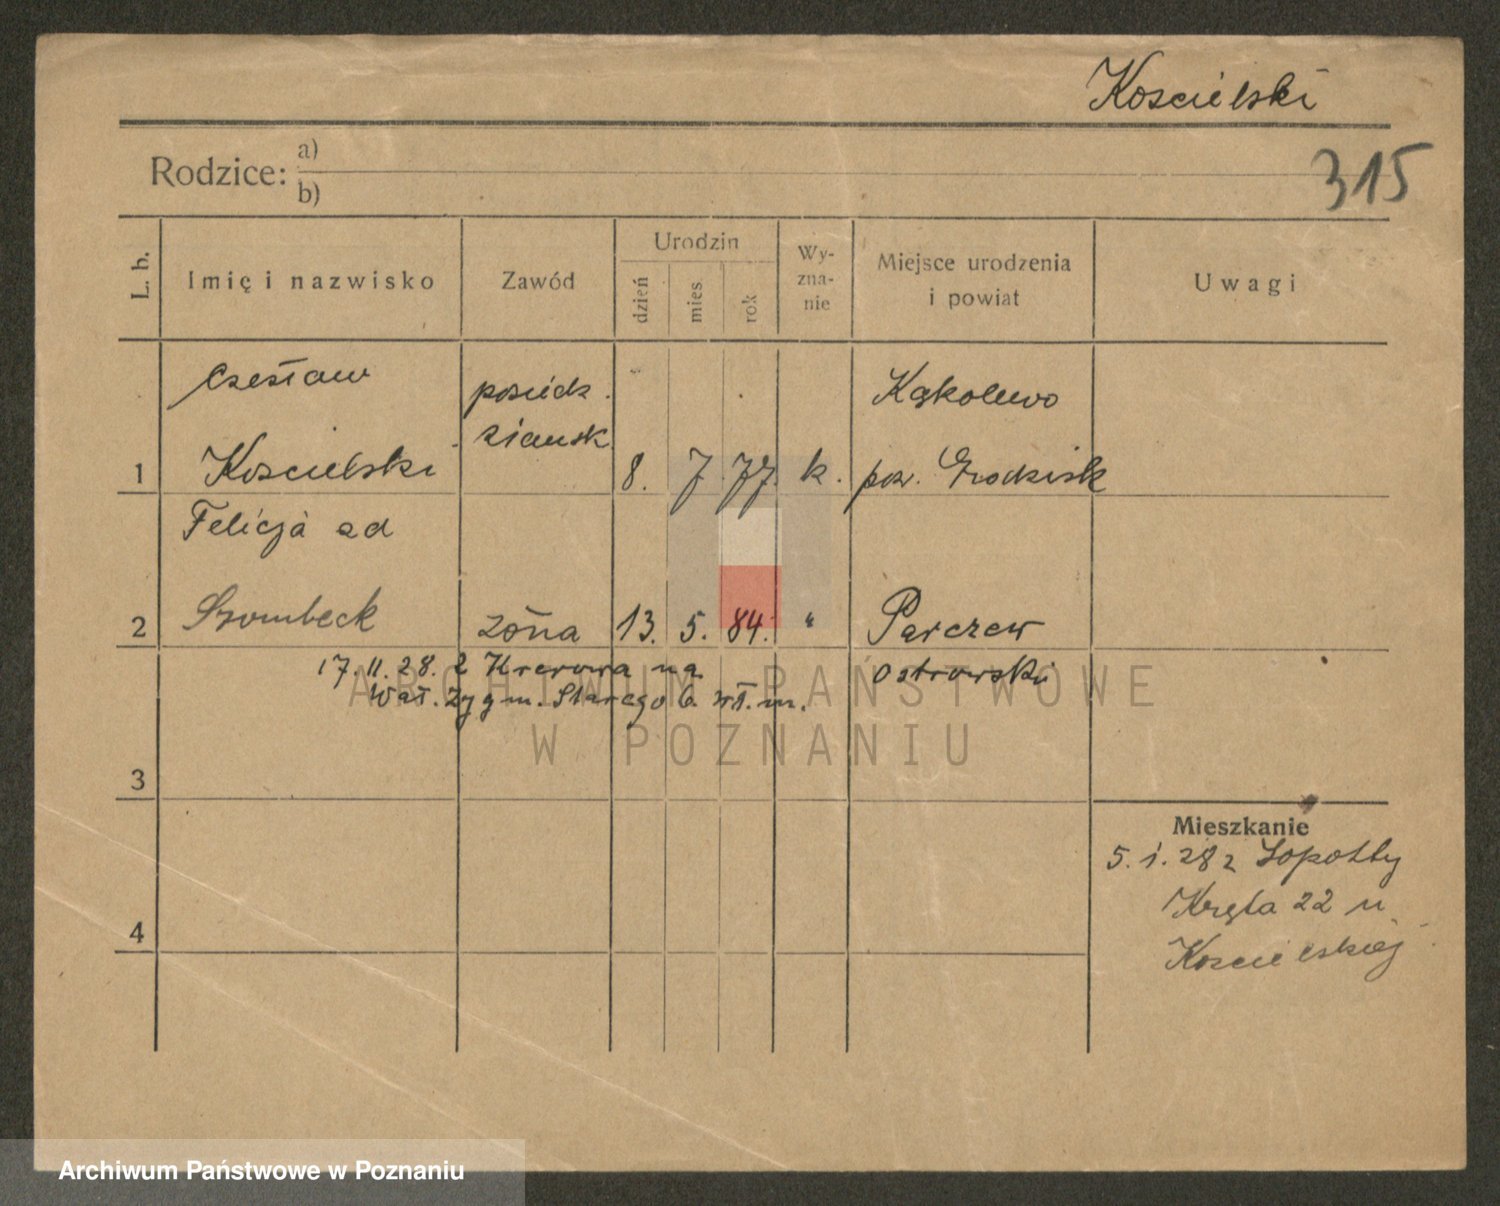 Koscielski
315
Rodzice: a)
b)
L. b.
Imię i nazwisko
Zawód
Urodzin
dzień
mies.
rok
Wy-
zna-
nie
Miejsce urodzenia
i powiat
Uwagi
1
Czesław
Koscielski
posiedz.
ziemsk.
8. 7 77. k.
Kąkolewo
pow. Grodzisk
2
Felicja zd
Szombeck
żona
13. 5. 84. "
Parczew
ostrowski
17. 11. 28. z Krerowa na
Wał. Zygm. Starego 6. wł. m.
3
4
Mieszkanie
5. 1. 28 z Sopotty
Kręta 22 u
Koscielskiej
ARCHIWUM PAŃSTWOWE
W POZNANIU
Archiwum Państwowe w Poznaniu